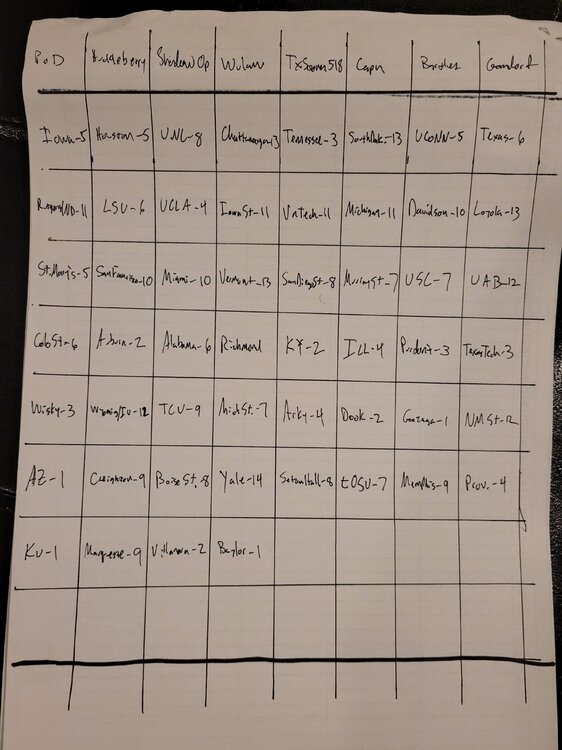 PoD Huckleberry ShadowOp Wulaw TxStorm518 Capn Barthes Gomdorf
Iowa-5 Houston-5 UNC-8 Chattanooga-13 Tennessee-3 SouthDak.-13 UCONN-5 Texas-6
Rutgers/ND-11 LSU-6 UCLA-4 IowaSt-11 VaTech-11 Michigan-11 Davidson-10 Loyola-13
St.Mary's-5 SanFrancisco-10 Miami-10 Vermont-13 SanDiegoSt-8 MurraySt-7 USC-7 UAB-12
ColoSt-6 Auburn-2 Alabama-6 Richmond KY-2 ILL-4 Purdue-3 TexasTech-3
Wisky-3 TCU-9 MichSt-7 Arky-4 Dook-2 Gonzaga-1 NMSt-12
AZ-1 Creighton-9 BoiseSt.-8 Yale-14 SetonHall-8 tOSU-7 Memphis-9 Prov.-4
KU-1 Marquette-9 Villanova-2 Baylor-1